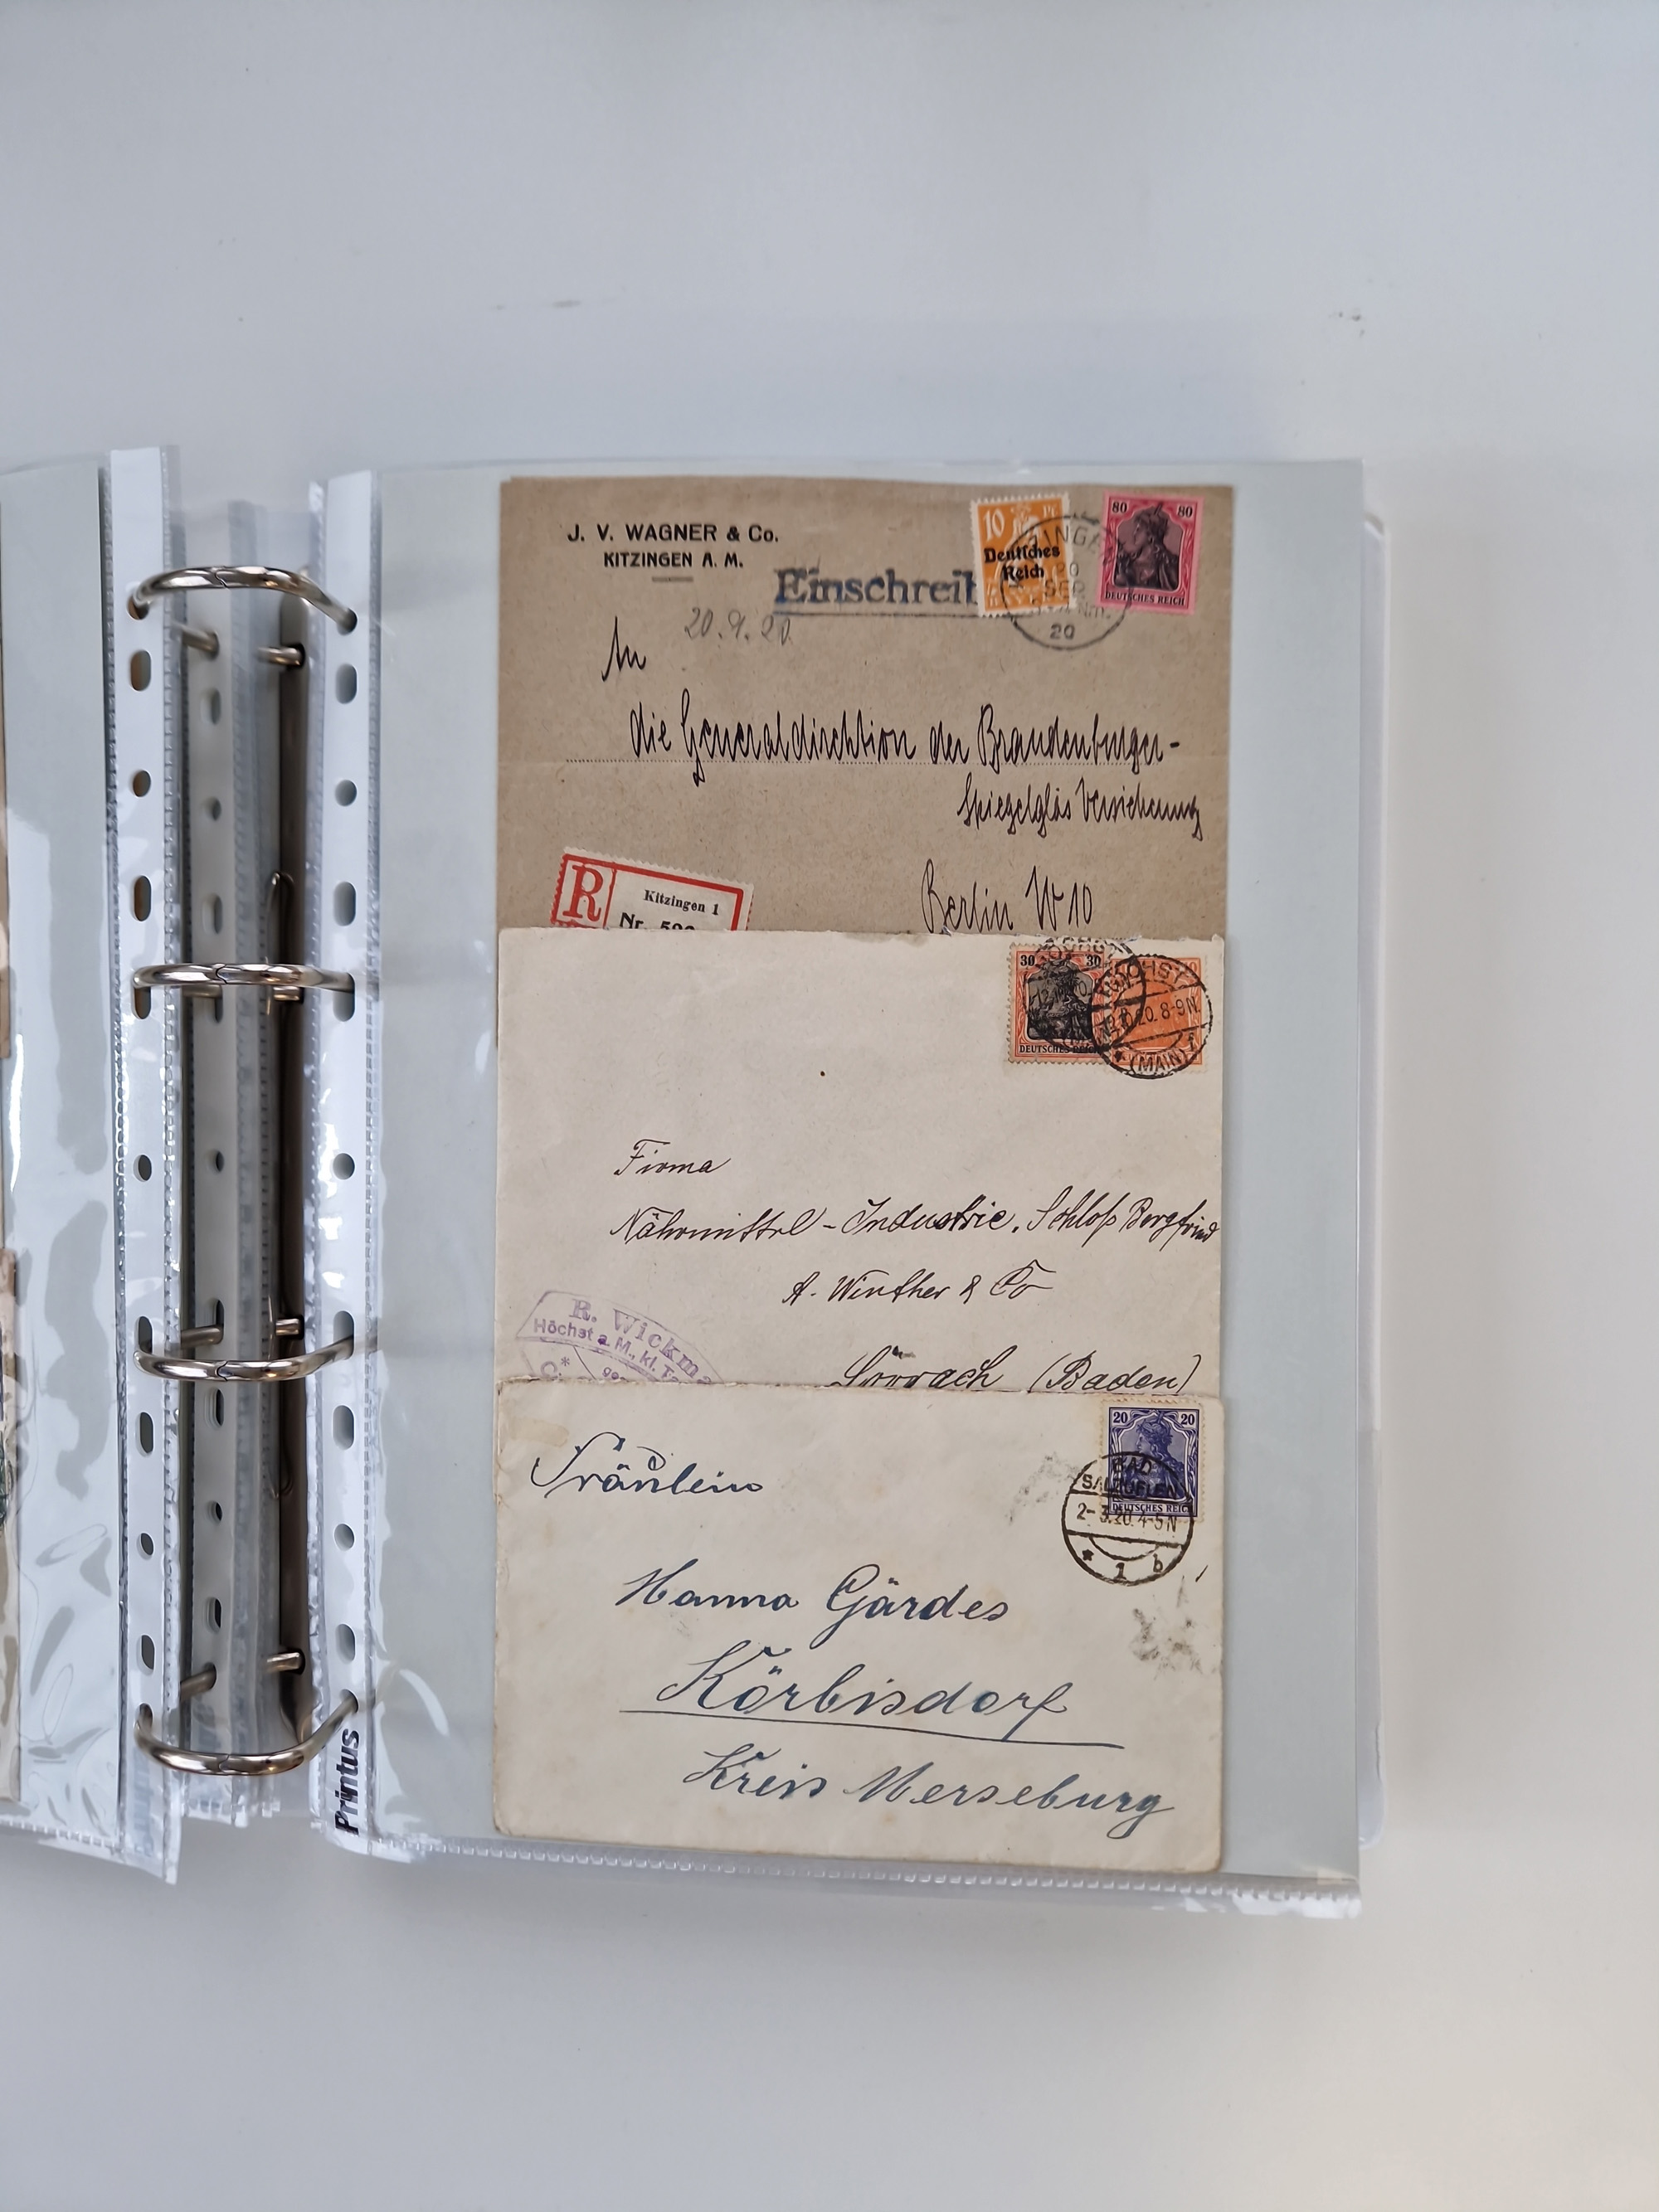 J. V. WAGNER & Co.
KITZINGEN A. M.
Einschreib
10
Deutsches
Reich
80 80
DEUTSCHES REICH
20
SEP
20
20.9.20.
An
die Generaldirektion der Brandenburger-
Spiegelglas Versicherung
Berlin W 10
R
Kitzingen 1
Nr.
30 30
DEUTSCHES REICH
HÖCHST
12.10.20. 8-9N
(MAIN)
Firma
Nährmittel-Industrie, Schloß Bergfried
A. Winther & Co
Lörrach (Baden)
R. Wickma
Höchst a. M., kl. Ta
20 20
DEUTSCHES REICH
BAD
SALZUFLEN
2-3.20. 4-5N
* 1 b
Fräulein
Hanna Gärdes
Körbisdorf
Kreis Merseburg
Printus